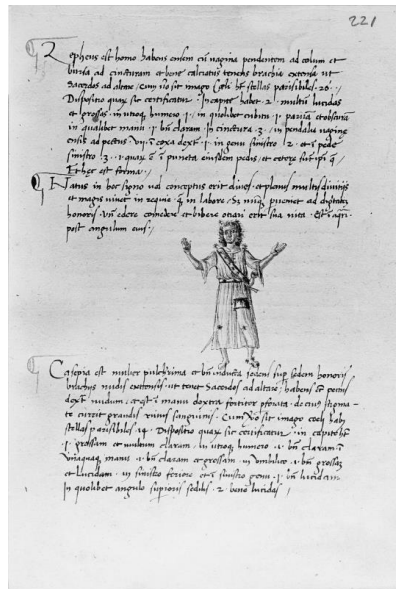 221
Zepheus est homo habens ensem cū vagina pendentem ad colum et
bursa ad cincturam et bene calciatus tenens brachia extensa ut
Sacerdos ad altare / Cum v̄o sit imago Coeli hēt stellas parisibiles . 26 .
Dispositio quarx̄ sic certificatur . In capite habet . 2 . multū lucidas
et grossas . in utroq humero 1 . in quolibet cubitu . 1 . et
in qualibet manu . 1 . bn̄ claram . In cinctura . 3 . in vagine
ensis ad pectus . in coxa dext . 1 . in genu sinistro . 2 . et ī pede
sinistro . 3 . ī puncta eiusdem pedis , et
Et hec est forma .
Natus in hoc signo vel conceptus erit dives et plenus multis divitiis
et magis vivet in requie q̄ in labore / Si ad dignitatē
honoris . bn̄ edere comedere et bibere erit sua vita .
post angulum eius /
Casepia est mulier pulcherima et bn̄ induta iacens sup sedem honoris
brachiis nudis extensis ut tenet Sacerdos ad altare : habens pectus
dextꝝ nudum , manu dextra fortiter de cuius
te rivus sanguinis . Cum v̄o sit imago coeli hab
stellas parisibiles . 14 . Dispositio quarx̄ sic certificatur . in capite hēt
. 1 . grossam et multum claram . in utroq humero . 1 . bn̄ claram . ī
unaquaq manu . 1 . bn̄ claram et grossam . in umbilico . 1 . bn̄ grossā
et Lucidam . in sinistro et ī sinistro genu . 1 . bn̄ lucidam
In quolibet angulo superioris sedilis . 2 . bene lucidas /